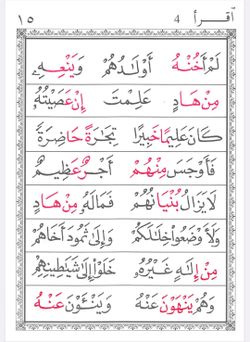 اقرأ 4 ١٥
لَمْ أَخُنْهُ أَوْلَٰدُهُمْ وَيَنْعِهِۦ
مِنْ هَادٍ عَلِمْتَ إِنْ عَصَيْتُهُۥ
كَانَ عَلِيمًا خَبِيرًا تِجَٰرَةً حَاضِرَةً
فَأَوْجَسَ مِنْهُمْ أَجْرٌ عَظِيمٌ
لَا يَزَالُ بُنْيَانُهُمْ فَمَالَهُ مِنْ هَادٍ
وَلَأَوْضَعُوا خِلَٰلَكُمْ وَإِلَىٰ ثَمُودَ أَخَاهُمْ
مِنْ إِلَٰهٍ غَيْرُهُۥ خَلَوْا إِلَىٰ شَيَٰطِينِهِمْ
وَهُمْ يَنْهَوْنَ عَنْهُ وَيَنْـَٔوْنَ عَنْهُ